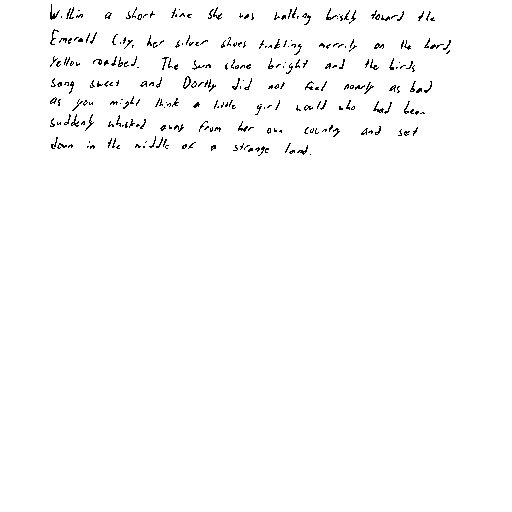 Within a short time she was walking briskly toward the
Emerald City, her silver shoes tinkling merrily on the hard,
yellow roadbed. The sun shone bright and the birds
sang sweet and Dorthy did not feel nearly as bad
as you might think a little girl would who had been
suddenly whisked away from her own country and set
down in the middle of a strange land.